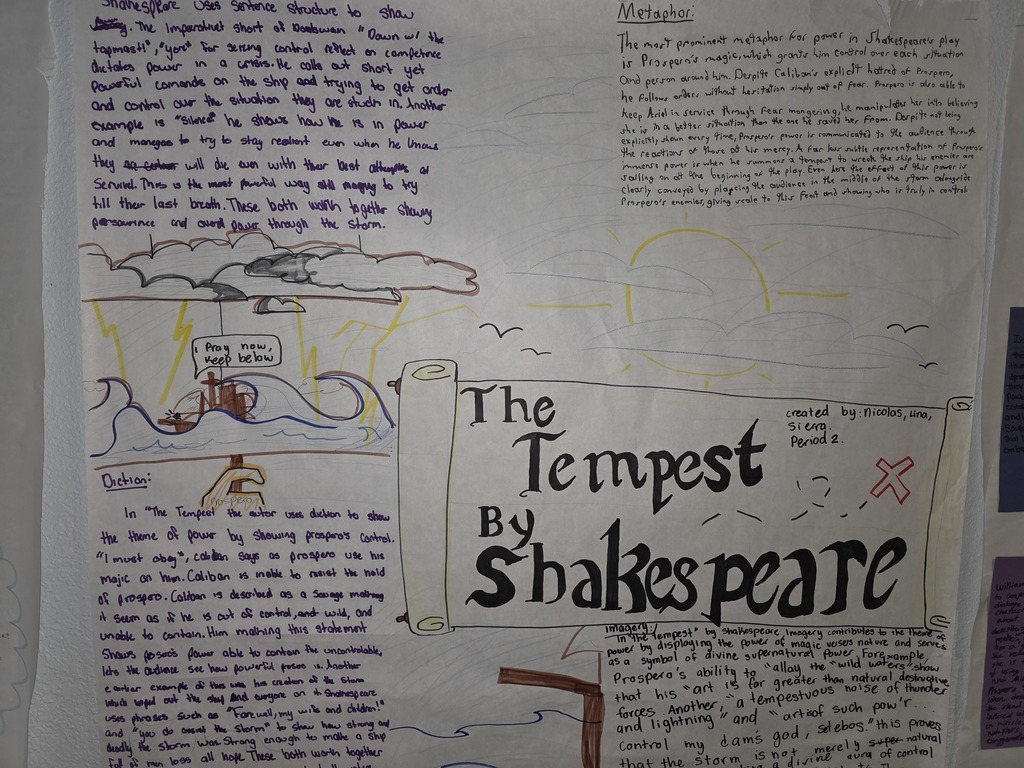 Shakespeare uses sentence structure to show
The imperative short of boatswain "Down w/ the
topmast!", "yore" for serving control reflect on competence
dictates power in a crisis. He calls out short yet
Powerful comands on the ship and trying to get order
and control over the situation they are stuck in. Another
example is "Silence" he shows how he is in power
and to try to stay even when he knows
they will die even with their best at
Servival. This is the most powerful way to try
till their last breath. These both work together showing
persaurince and overal power through the storm.
Metaphor:
The most prominent metaphor for power in Shakespeare's play
is Prospero's magic, which grants him control over each situation
and person around him. Despite Caliban's explicit hatred of Prospero,
he follows orders without hesitation simply out of fear. Prospero is also able to
keep Ariel in service through fear mongering, he manipulates her into believing
she is in a better situation than the one he saved her from. Despite not being
explicitly shown every time, Prospero's power is communicated to the audience through
the reactions of those at his mercy. A far less subtle representation of Prospero's
immense power is when he summons a tempest to wreck the ship his enemies are
sailing on at the beginning of the play. Even here the effect of this power is
clearly conveyed by plapcing the audience in the middle of the storm alongside
Prospero's enemies, giving scale to this feat and showing who is truly in control
I Pray now,
keep below
Prospero
The
Tempest
By
Shakespeare
created by: Nicolas, Lina,
Sierra.
Period 2.
Diction:
In "The Tempest" the autor uses diction to show
the theme of power by showing prospero's control.
"I must obey", caliban says as prospero use his
majic on him. Caliban is inable to resist the hold
of prospero. Caliban is described as a Savage making
it seem as if he is out of control, and wild, and
unable to contain. Him making this statement
Shows power able to contain the uncontrolable,
lets the audience see how powerful is. Another
earlier example of this was his creation of the Storm
which wiped out the ship and everyone on it Shakespeare
uses phrases such as "Farewell, my wife and children!"
and "you do assist the storm" to show how strong and
deadly the storm was. Strong enough to make a ship
full of men loss all hope These both work together
imagery:
In "the tempest" by Shakespeare, Imagery contributes to the theme of
power by displaying the power of magic verses nature and serves
as a symbol of divine supernatural power. For example,
Prospero's ability to "allay the "wild waters" show
that his "art is for greater than natural destructive
forces. Another, "a tempestuous noise of thunder
and lightning" and "art is of such pow'r...
control my dam's god, setebos." this proves
that the storm is not merely super natural